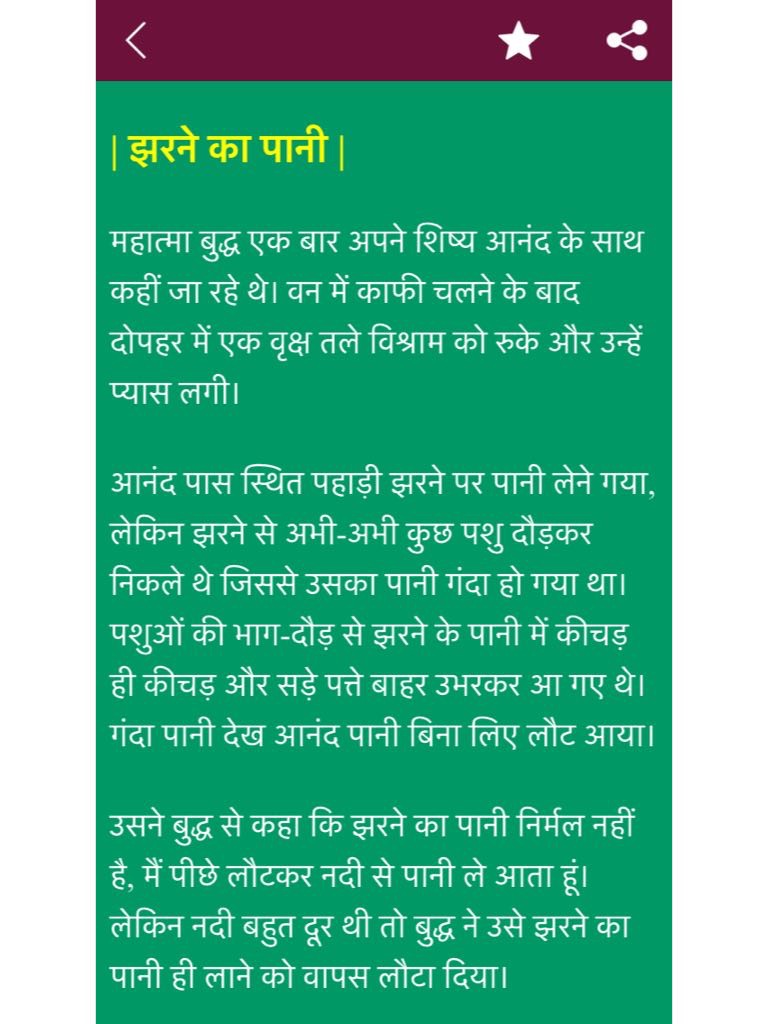 | झरने का पानी |
महात्मा बुद्ध एक बार अपने शिष्य आनंद के साथ
कहीं जा रहे थे। वन में काफी चलने के बाद
दोपहर में एक वृक्ष तले विश्राम को रुके और उन्हें
प्यास लगी।
आनंद पास स्थित पहाड़ी झरने पर पानी लेने गया,
लेकिन झरने से अभी-अभी कुछ पशु दौड़कर
निकले थे जिससे उसका पानी गंदा हो गया था।
पशुओं की भाग-दौड़ से झरने के पानी में कीचड़
ही कीचड़ और सड़े पत्ते बाहर उभरकर आ गए थे।
गंदा पानी देख आनंद पानी बिना लिए लौट आया।
उसने बुद्ध से कहा कि झरने का पानी निर्मल नहीं
है, मैं पीछे लौटकर नदी से पानी ले आता हूं।
लेकिन नदी बहुत दूर थी तो बुद्ध ने उसे झरने का
पानी ही लाने को वापस लौटा दिया।